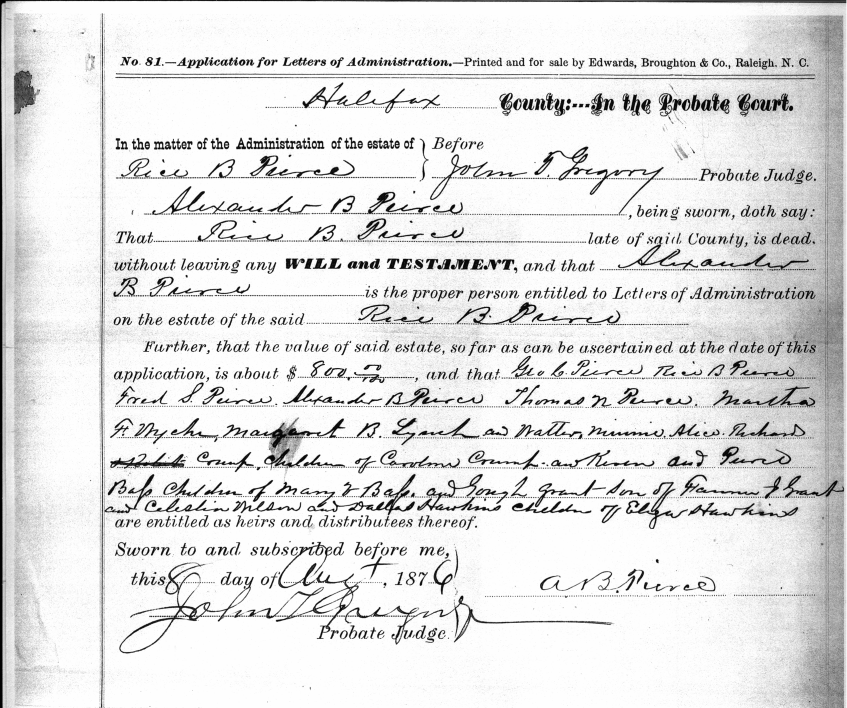 No. 81.—Application for Letters of Administration.—Printed and for sale by Edwards, Broughton & Co., Raleigh, N. C.
Halifax County:---In the Probate Court.
In the matter of the Administration of the estate of } Before
Rice B Pierce John T. Gregory Probate Judge.
Alexander B Pierce, being sworn, doth say:
That Rice B. Pierce late of said County, is dead,
without leaving any WILL and TESTAMENT, and that Alexander
B Pierce is the proper person entitled to Letters of Administration
on the estate of the said Rice B. Pierce
Further, that the value of said estate, so far as can be ascertained at the date of this
application, is about $ 800, and that Geo C Pierce Rice B Pierce
Fred S. Pierce. Alexander B Pierce Thomas N Pierce. Martha
F. Wyche, Margaret B. Lynch and Walter, Minnie Alice Richard
Crump, children of Caroline Crump and and Pierce
Bass children of Mary Bass. and Gough Grant son of Fannie J Grant
and Celestia Wilson and Dallas Hawkins children of Eliza Hawkins
are entitled as heirs and distributees thereof.
Sworn to and subscribed before me,
this 8 day of Augt, 1876
A B. Pierce
John T Gregory
Probate Judge.